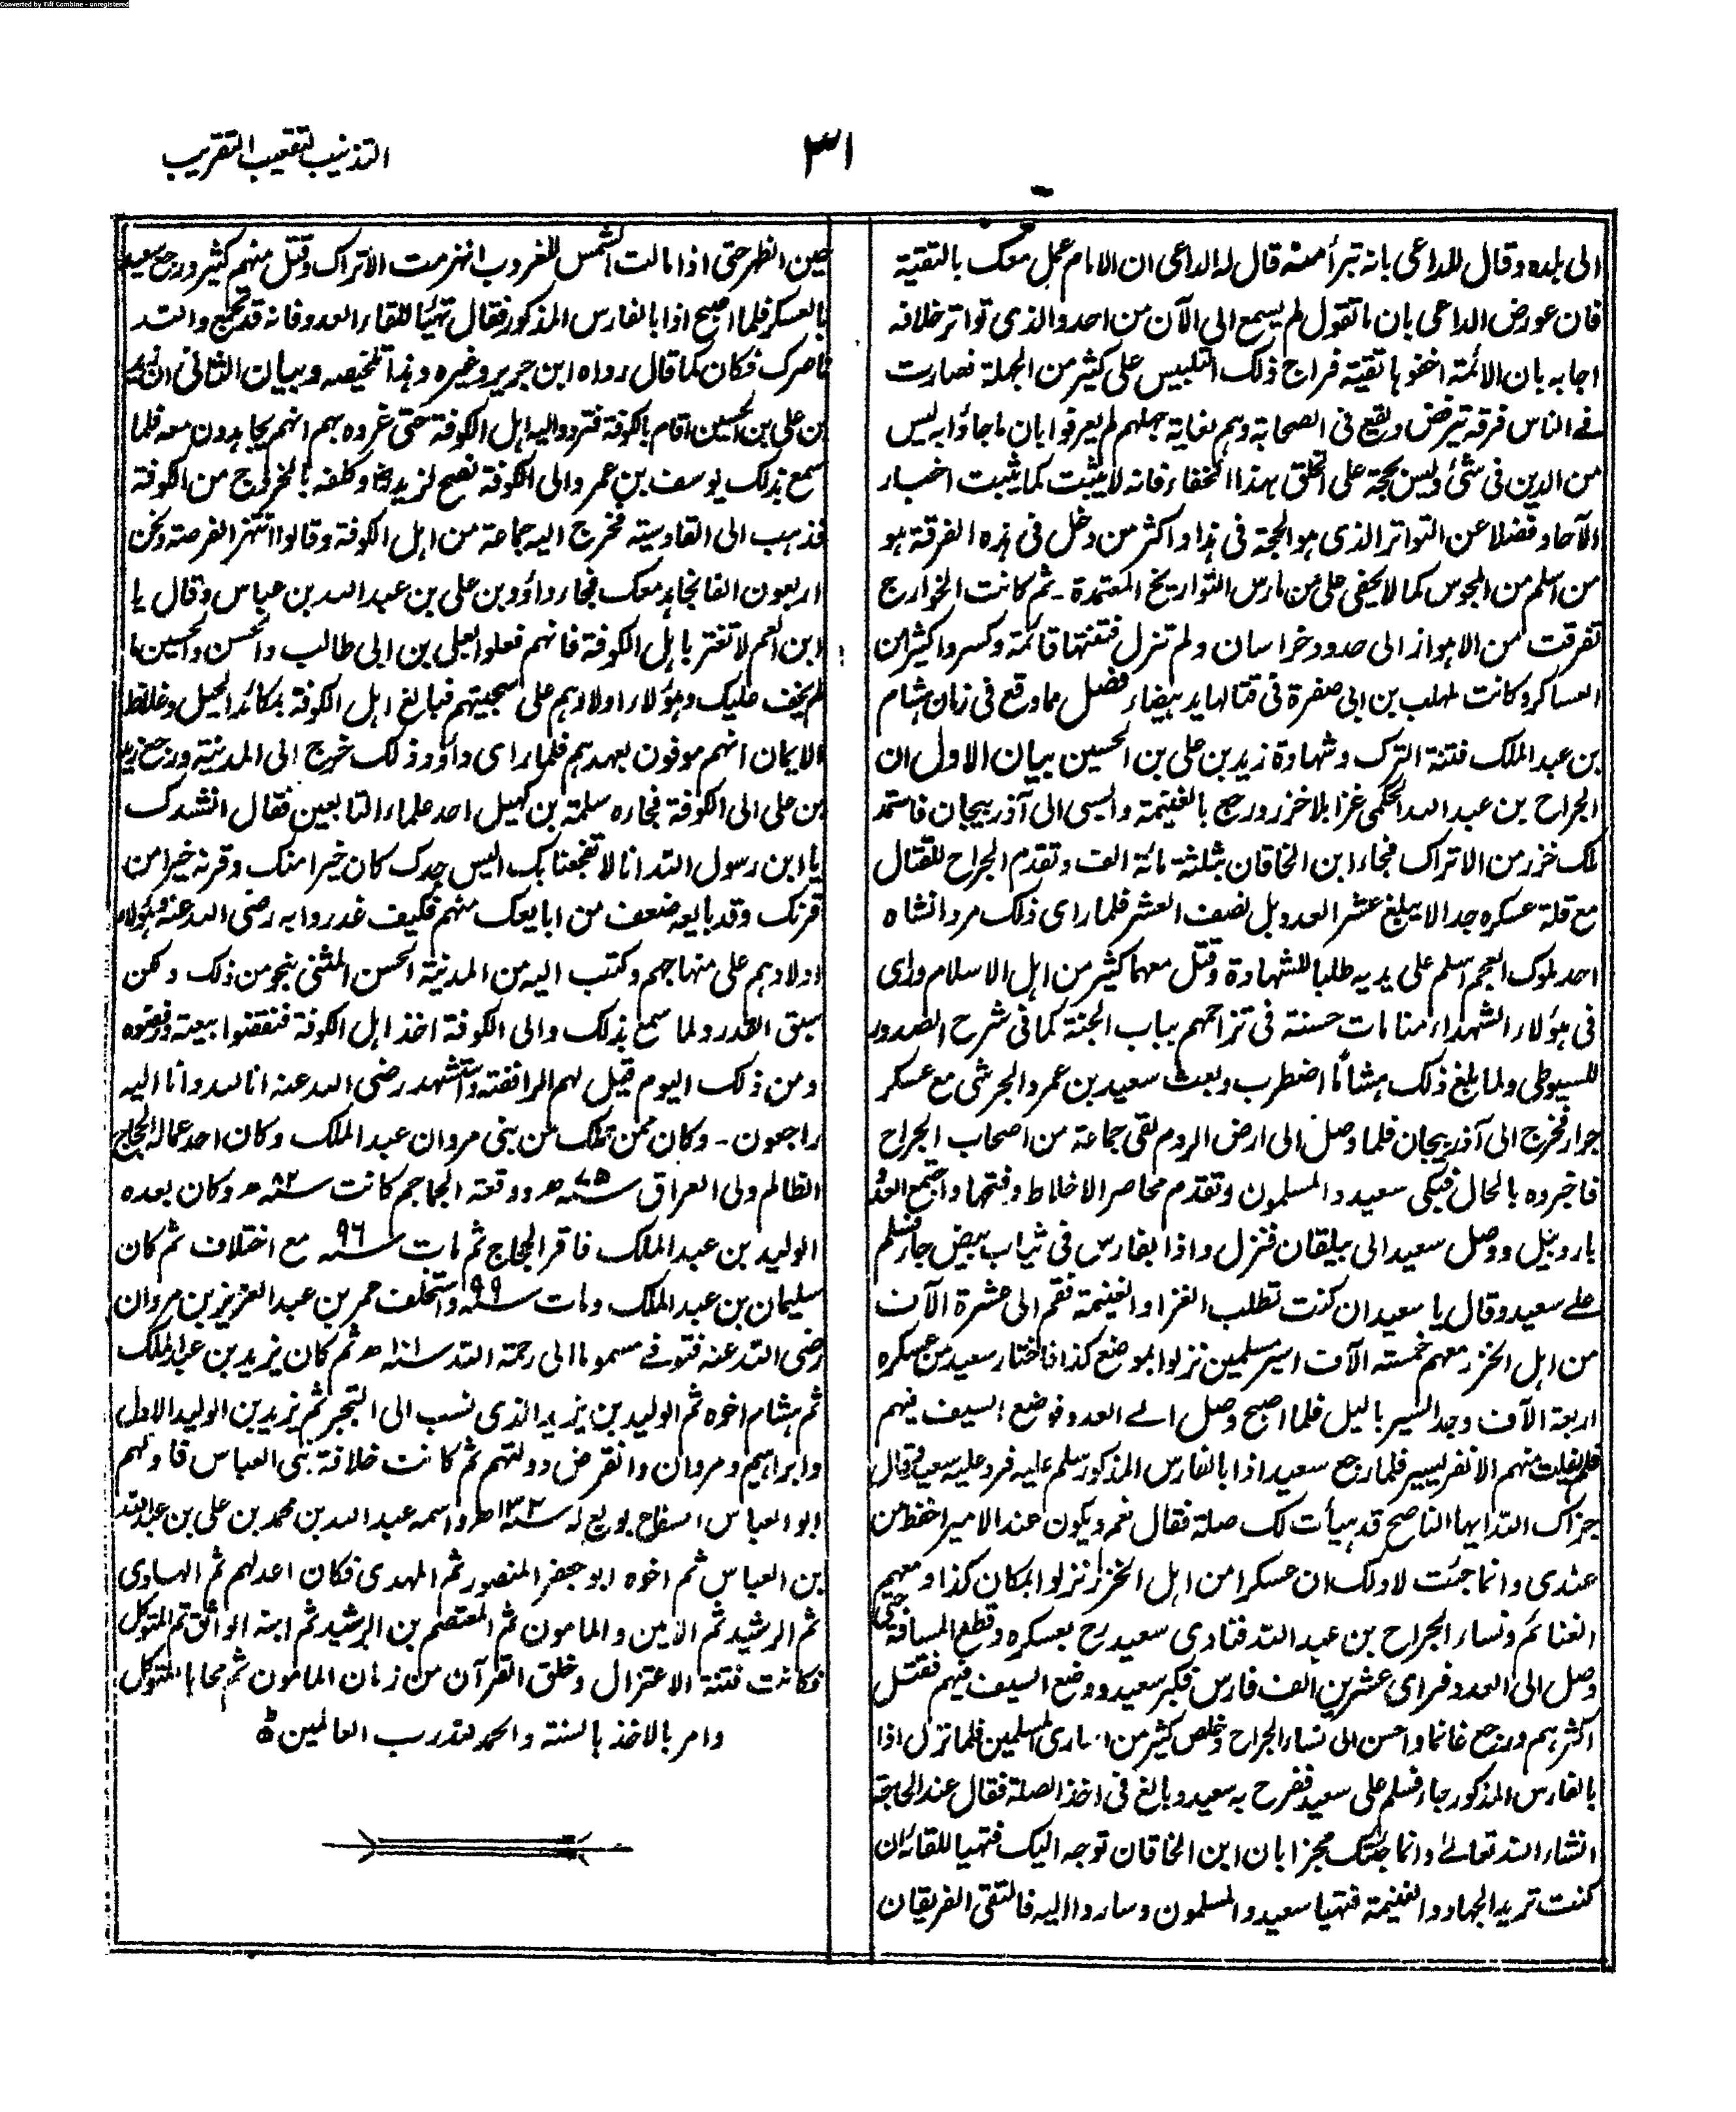 Converted by Tiff Combine - unregistered
التذنيب لتعقيب التقريب
٣١
الى بلده وقال للداعى بانه تبرأ منه قال له الداعى ان الامام عمل معك بالتقية
فان عورض الداعى بان ما تقول لم يسمع الى الآن من احد والذى تواتر خلافه
اجابه بان الائمة اخفوها تقية فراج ذلك التلبيس على كثير من الجهلة فصارت
فى الناس فرقة ترفض وتقع فى الصحابة وهم لغاية جهلهم لم يعرفوا بان ما جاؤا به ليس
من الدين فى شئ وليس بحجة على الخلق بهذا الخفاء فانه لا يثبت كما يثبت اخبار
الآحاد فضلا عن التواتر الذى هو الحجة فى هذا واكثر من دخل فى هذه الفرقة هو
من اسلم من المجوس كما لا يخفى على من مارس التواريخ المعتمدة ـ ثم كانت الخوارج
تفرقت من الاهواز الى حدود خراسان ولم تزل فتنتها قائمة وكسروا كثيرا من
العساكر وكانت لمهلب بن ابى صفرة فى قتالها يد بيضاء فصل مما وقع فى زمان هشام
بن عبد الملك فتنة الترك وشهادة زيد بن على بن الحسين بيان الاول ان
الجراح بن عبد الله الحكمى غزا بلاد خزر ورجع بالغنيمة والسبى الى آذربيجان فاستمد
ملك خزر من الاتراك فجاء ابن الخاقان بثلثة مائة الف وتقدم الجراح للقتال
مع قلة عسكره جدا لا يبلغ عشر العدو بل نصف العشر فلما راى ذلك مردانشاه
احد ملوك العجم اسلم على يديه طلبا للشهادة وقتل معهما كثير من اهل الاسلام وراى
فى هؤلاء الشهداء منامات حسنة فى تزاحمهم بباب الجنة كما فى شرح الصدور
للسيوطى ولما بلغ ذلك هشاما اضطرب وبعث سعيد بن عمرو الجرشى مع عسكر
جرار فخرج الى آذربيجان فلما وصل الى ارض الروم لقى جماعة من اصحاب الجراح
فاخبروه بالحال فبكى سعيد والمسلمون وتقدم محاصر الاخلاط وفتحها واجتمع العدو
باردبيل ووصل سعيد الى بيلقان فنزل واذا بفارس فى ثياب بيض جاء فسلم
على سعيد وقال يا سعيد ان كنت تطلب الغزا والغنيمة فقم الى عشرة الآف
من اهل الخزر معهم خمسة الآف اسير مسلمين نزلوا بموضع كذا فاختار سعيد من عسكره
اربعة الآف وجد السير بالليل فلما اصبح وصل الى العدو فوضع السيف فيهم
فلم يفلت منهم الا نفر يسير فلما رجع سعيد اذا بالفارس المذكور سلم عليه فرد عليه سعيد وقال
جزاك الله ايها الناصح قد هيأت لك صلة فقال نعم ويكون عند الامير احفظ من
عندى وانما جئت لادلك ان عسكرا من اهل الخزر نزلوا بمكان كذا ومعهم
الغنائم ونساء الجراح بن عبد الله فنادى سعيد رح بعسكره وقطع المسافة حتى
وصل الى العدو فراى عشرين الف فارس فكبر سعيد ووضع السيف فيهم فقتل
اكثرهم ورجع غانما واحسن الى نساء الجراح وخلص كثير من اسارى المسلمين فلما نزل اذا
بالفارس المذكور جاء فسلم على سعيد ففرح به سعيد وبالغ فى اخذ الصلة فقال عند الحاجة
انشاء الله تعالى وانما جئتك مخبرا بان ابن الخاقان توجه اليك فتهيا للقائه ان
كنت تريد الجهاد والغنيمة فتهيا سعيد والمسلمون وساروا اليه فالتقى الفريقان
حين الظهر حتى اذا مالت الشمس للغروب انهزمت الاتراك وقتل منهم كثير ورجع سعيد
بالعسكر فلما اصبح اذا بالفارس المذكور فقال تهيا للقاء العدو فانه قد تجمع والله
ناصرك فكان كما قال رواه ابن جرير وغيره وهذا تلخيصه وبيان الثانى ان زيد
بن على بن الحسين اقام بالكوفة فتردد اليه اهل الكوفة حتى غروه بهم انهم يجاهدون معه فلما
سمع بذلك يوسف بن عمر والى الكوفة نصح لزيد رض وكلفه بالخروج من الكوفة
فذهب الى القادسية فخرج اليه جماعة من اهل الكوفة وقالوا انتهز الفرصة ونحن
اربعون الفا نجاهد معك فجاء داؤد بن على بن عبد الله بن عباس وقال يا
ابن العم لا تغتر باهل الكوفة فانهم فعلوا بعلى بن ابى طالب والحسن والحسين ما
لم يخف عليك وهؤلاء اولادهم على سجيتهم فبالغ اهل الكوفة بمكائد الحيل وغلائظ
الايمان انهم موفون بعهدهم فلما راى داؤد ذلك خرج الى المدينة ورجع زيد
بن على الى الكوفة فجاءه سلمة بن كهيل احد علماء التابعين فقال انشدك
يا ابن رسول الله انا لا تفجعنا بك اليس جدك كان خيرا منك وقرنه خيرا من
قرنك وقد بايعه ضعف من بايعك منهم فكيف غدروا به رضى الله عنه وهؤلاء
اولادهم على منهاجهم وكتب اليه من المدينة الحسن المثنى بنحو من ذلك ولكن
سبق القدر ولما سمع بذلك والى الكوفة اخذ اهل الكوفة فنقضوا بيعته ورفضوه
ومن ذلك اليوم قيل لهم الرافضة واستشهد رضى الله عنه انا لله وانا اليه
راجعون ـ وكان ممن تملك من بنى مروان عبد الملك وكان احد عماله الحجاج
الظالم ولى العراق سنة ٧٥ھ ووقعة الجماجم كانت سنة ٨٢ھ وكان بعده
الوليد بن عبد الملك فاقر الحجاج ثم مات سنة ٩٦ مع اختلاف ثم كان
سليمان بن عبد الملك ومات سنة ٩٩ واستخلف عمر بن عبد العزيز بن مروان
رضى الله عنه فتوفى مسموما الى رحمة الله سنة ١٠١ھ ثم كان يزيد بن عبد الملك
ثم هشام اخوه ثم الوليد بن يزيد الذى نسب الى التجبر ثم يزيد بن الوليد الاول
وابراهيم ومروان وانقرض دولتهم ثم كانت خلافة بنى العباس فاولهم
ابو العباس السفاح بويع له سنة ١٣٢ھ واسمه عبد الله بن محمد بن على بن عبد الله
بن العباس ثم اخوه ابو جعفر المنصور ثم المهدى فكان اعدلهم ثم الهادى
ثم الرشيد ثم الامين والمامون ثم المعتصم بن الرشيد ثم ابنه الواثق ثم المتوكل
فكانت فتنة الاعتزال وخلق القرآن من زمان المامون ثم محاها المتوكل
وامر بالاخذ بالسنة والحمد لله رب العالمين